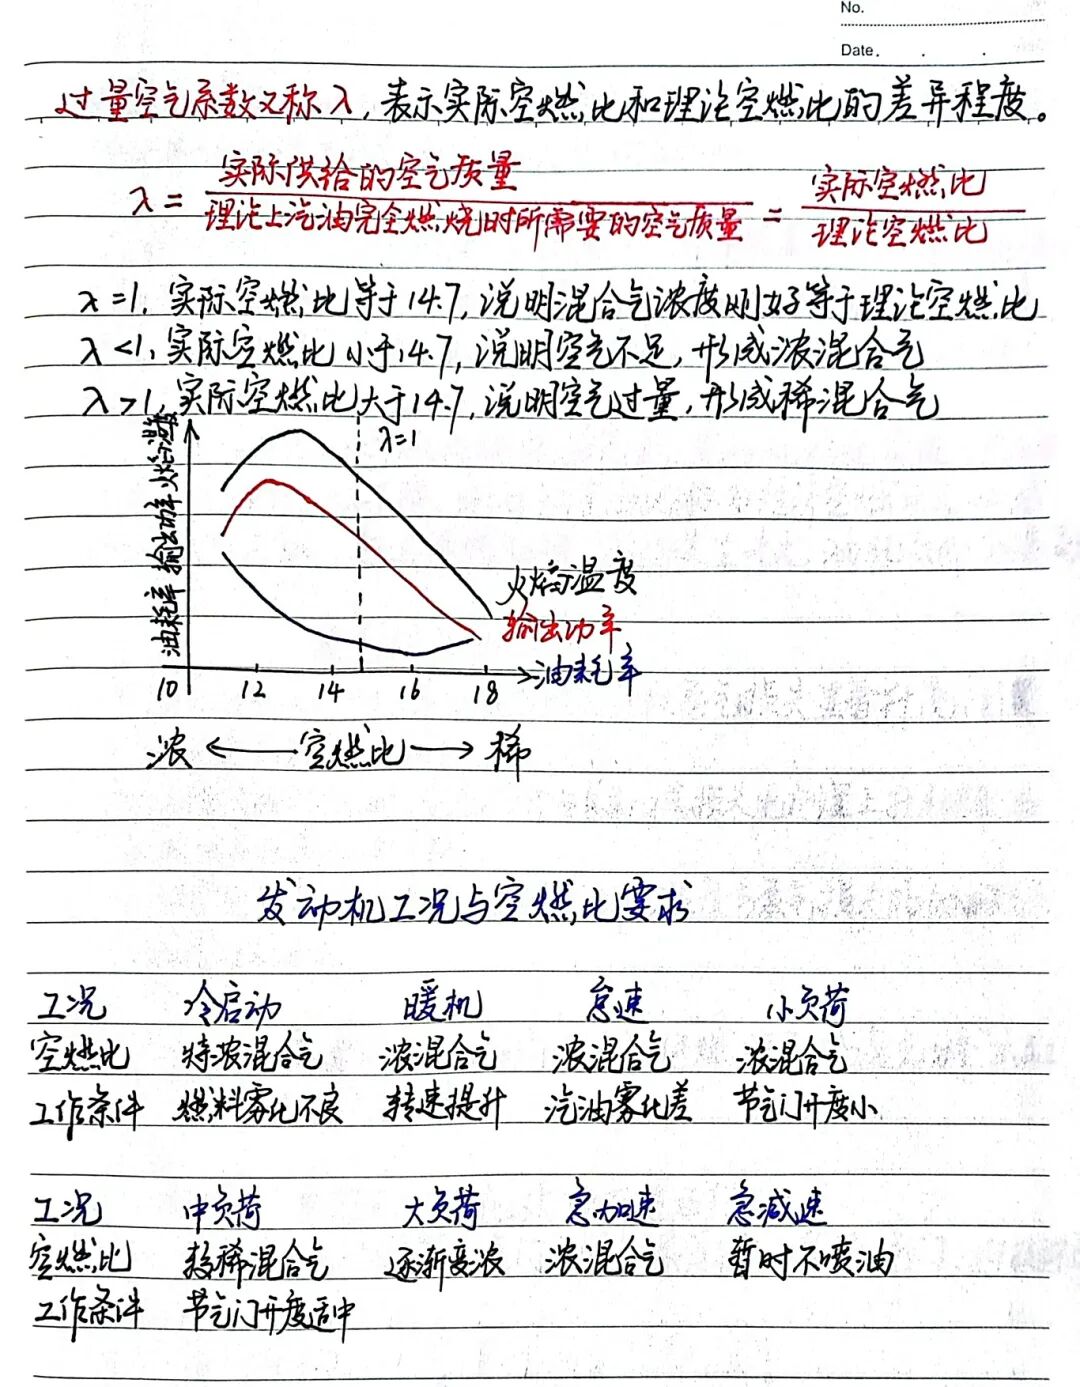 No.
Date. . .
过量空气系数又称λ,表示实际空燃比和理论空燃比的差异程度。
λ = 实际供给的空气质量 / 理论上汽油完全燃烧时所需要的空气质量 = 实际空燃比 / 理论空燃比
λ=1,实际空燃比等于14.7,说明混合气浓度刚好等于理论空燃比
λ<1,实际空燃比小于14.7,说明空气不足,形成浓混合气
λ>1,实际空燃比大于14.7,说明空气过量,形成稀混合气
λ=1
油耗率 输出功率
火焰温度
输出功率
油耗率
10 12 14 16 18
浓 ← 空燃比 → 稀
发动机工况与空燃比要求
工况 冷启动 暖机 怠速 小负荷
空燃比 特浓混合气 浓混合气 浓混合气 浓混合气
工作条件 燃料雾化不良 转速提升 汽油雾化差 节气门开度小
工况 中负荷 大负荷 急加速 急减速
空燃比 较稀混合气 逐渐变浓 浓混合气 暂时不喷油
工作条件 节气门开度适中